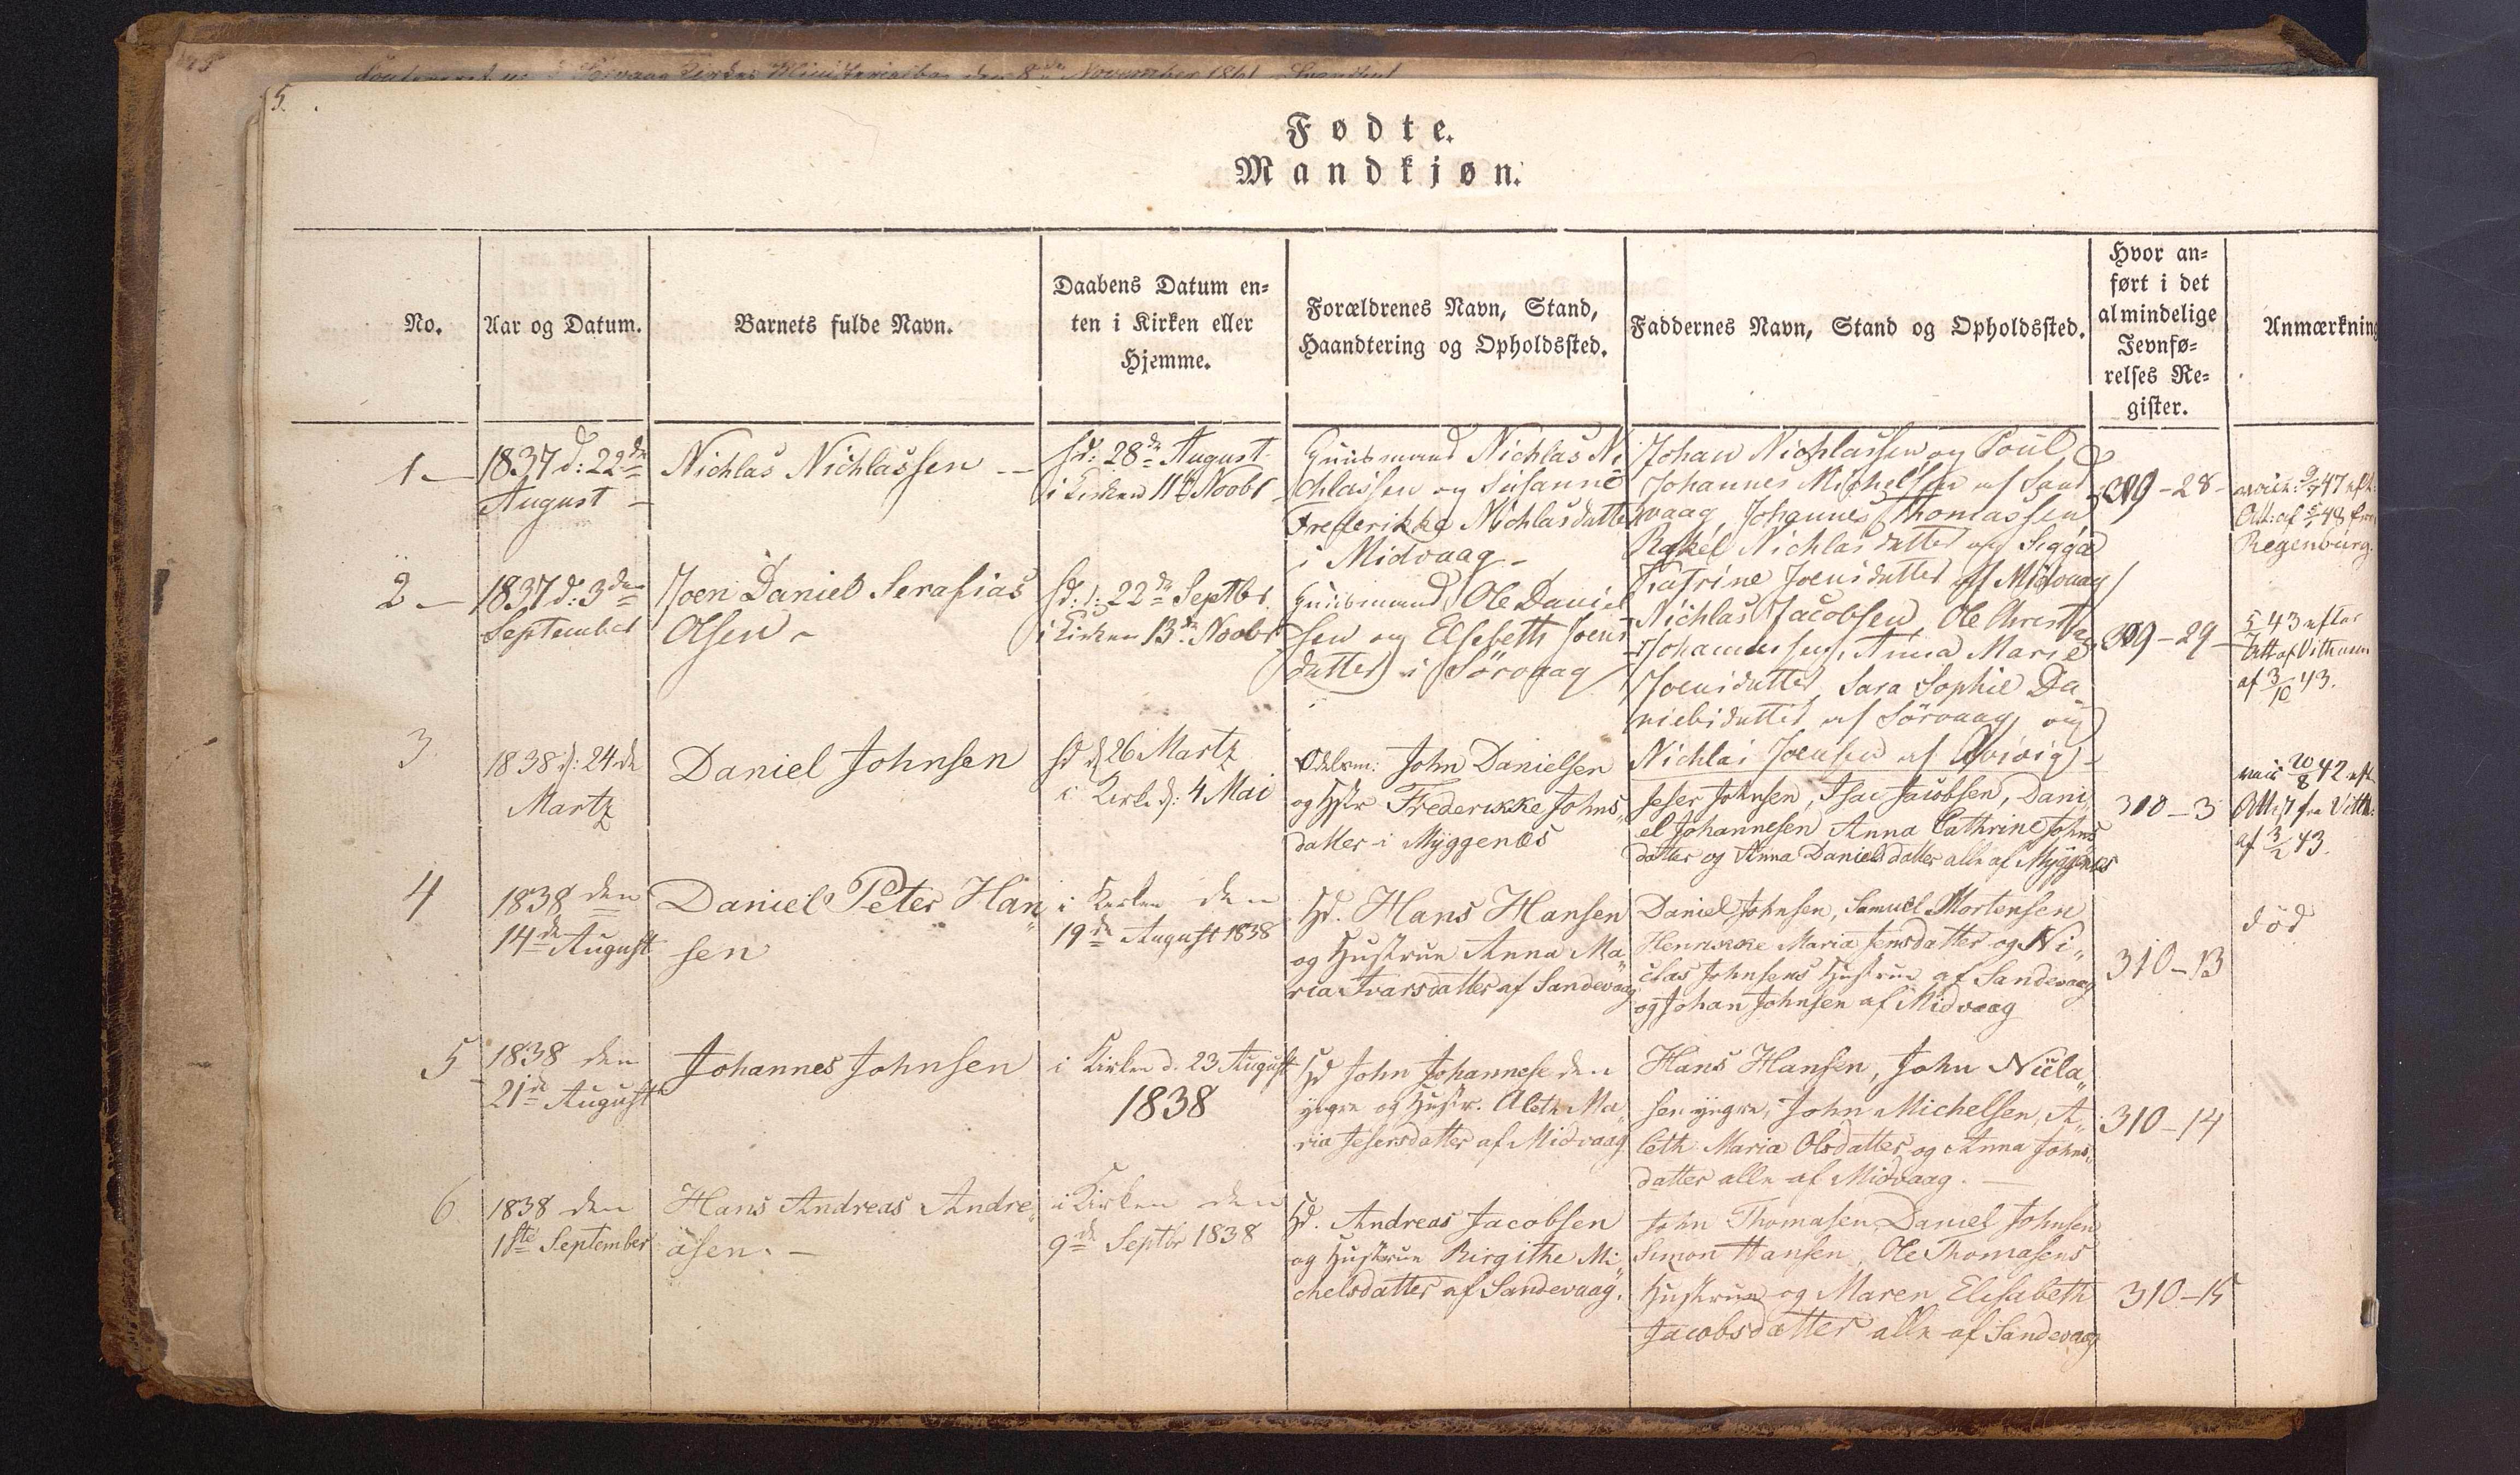 5.
Fødte.
Mandkjøn.
No.
Aar og Datum.
Barnets fulde Navn.
Daabens Datum en-
ten i Kirken eller
Hjemme.
Forældrenes Navn, Stand,
Haandtering og Opholdssted.
Faddernes Navn, Stand og Opholdssted.
Hvor an-
ført i det
almindelige
Jevnfø-
relses Re-
gister.
Anmærkning
1
1837 d: 22de
August
Nichlas Nichlassen
hd: 28de August
i Kirken 11te Novbr
Huusmand Nichlas Ni
chlassen og Susanne
Frederikke Nichlasdatter
i Midvaag
Johan Nichlassen og Poul
Johannes Michelsen af Sand
vaag, Johannes Thomassen
Rakel Nichlasdatter og Sigga
Katrine Joensdatter af Midvaag
-28-
47 eft:
Att: af 5/1 48 fra
Regenburg.
2
1837 d: 3die
September
Joen Daniel Serafias
Olsen
hd: d: 22de Septbr
i Kirken 13de Novbr
Huusmand Ole Daniel
sen og Elsebeth Joens
datter i Sörvaag
Nichlas Jacobsen, Ole Christian
Johannessen, Anna Marie
Joensdatter, Sara Sophie Da
nielsdatter af Sörvaag og
Nichlas Joensen af
-29-
43 efter
Att af
af 3/10 43.
3
1838 d: 24de
Martz
Daniel Johnsen
hd d 26 Martz
i Kirk. d: 4 Mai
Odelsm: John Danielsen
og Hstr Frederikke Johns„
datter i Myggenæs
Jeser Johnsen, Isac Jacobsen, Dani
el Johannesen Anna Cathrine Johns
datter og Anna Danielsdatter alle af Myggenæs
310-3
20/8 42 eft
Attest fra
af 3/2 43.
4
1838 den
14de August
Daniel Peter Han„
sen
i Kirken den
19de August 1838
Hd. Hans Hansen
og Hustrue Anna Ma„
ria Ivarsdatter af Sandevaag
Daniel Johnsen, Samuel Mortensen
Henrikke Maria Jensdatter og Ni„
clas Johnsens Hustrue af Sandevaag
og Johan Johnsen af Midvaag
310-13
död
5
1838 den
21de August
Johannes Johnsen
i Kirken d. 23 August
1838
Hd John Johannesen den
yngre og Hustr. Alete Ma„
ria Jesersdatter af Midvaag
Hans Hansen, John Nicla„
sen yngre, John Michelsen, A„
leth Maria Olsdatter og Anna Johns„
datter alle af Midvaag.
310-14
6
1838 den
1ste September
Hans Andreas Andre„
asen.
i Kirken den
9de Septbr 1838
Hd. Andreas Jacobsen
og Hustrue Birgithe Mi„
chelsdatter af Sandevaag.
John Thomasen Daniel Johnsen
Simon Hansen, Ole Thomasens
Hustrue og Maren Elisabeth
Jacobsdatter alle af Sandevaag
310-15